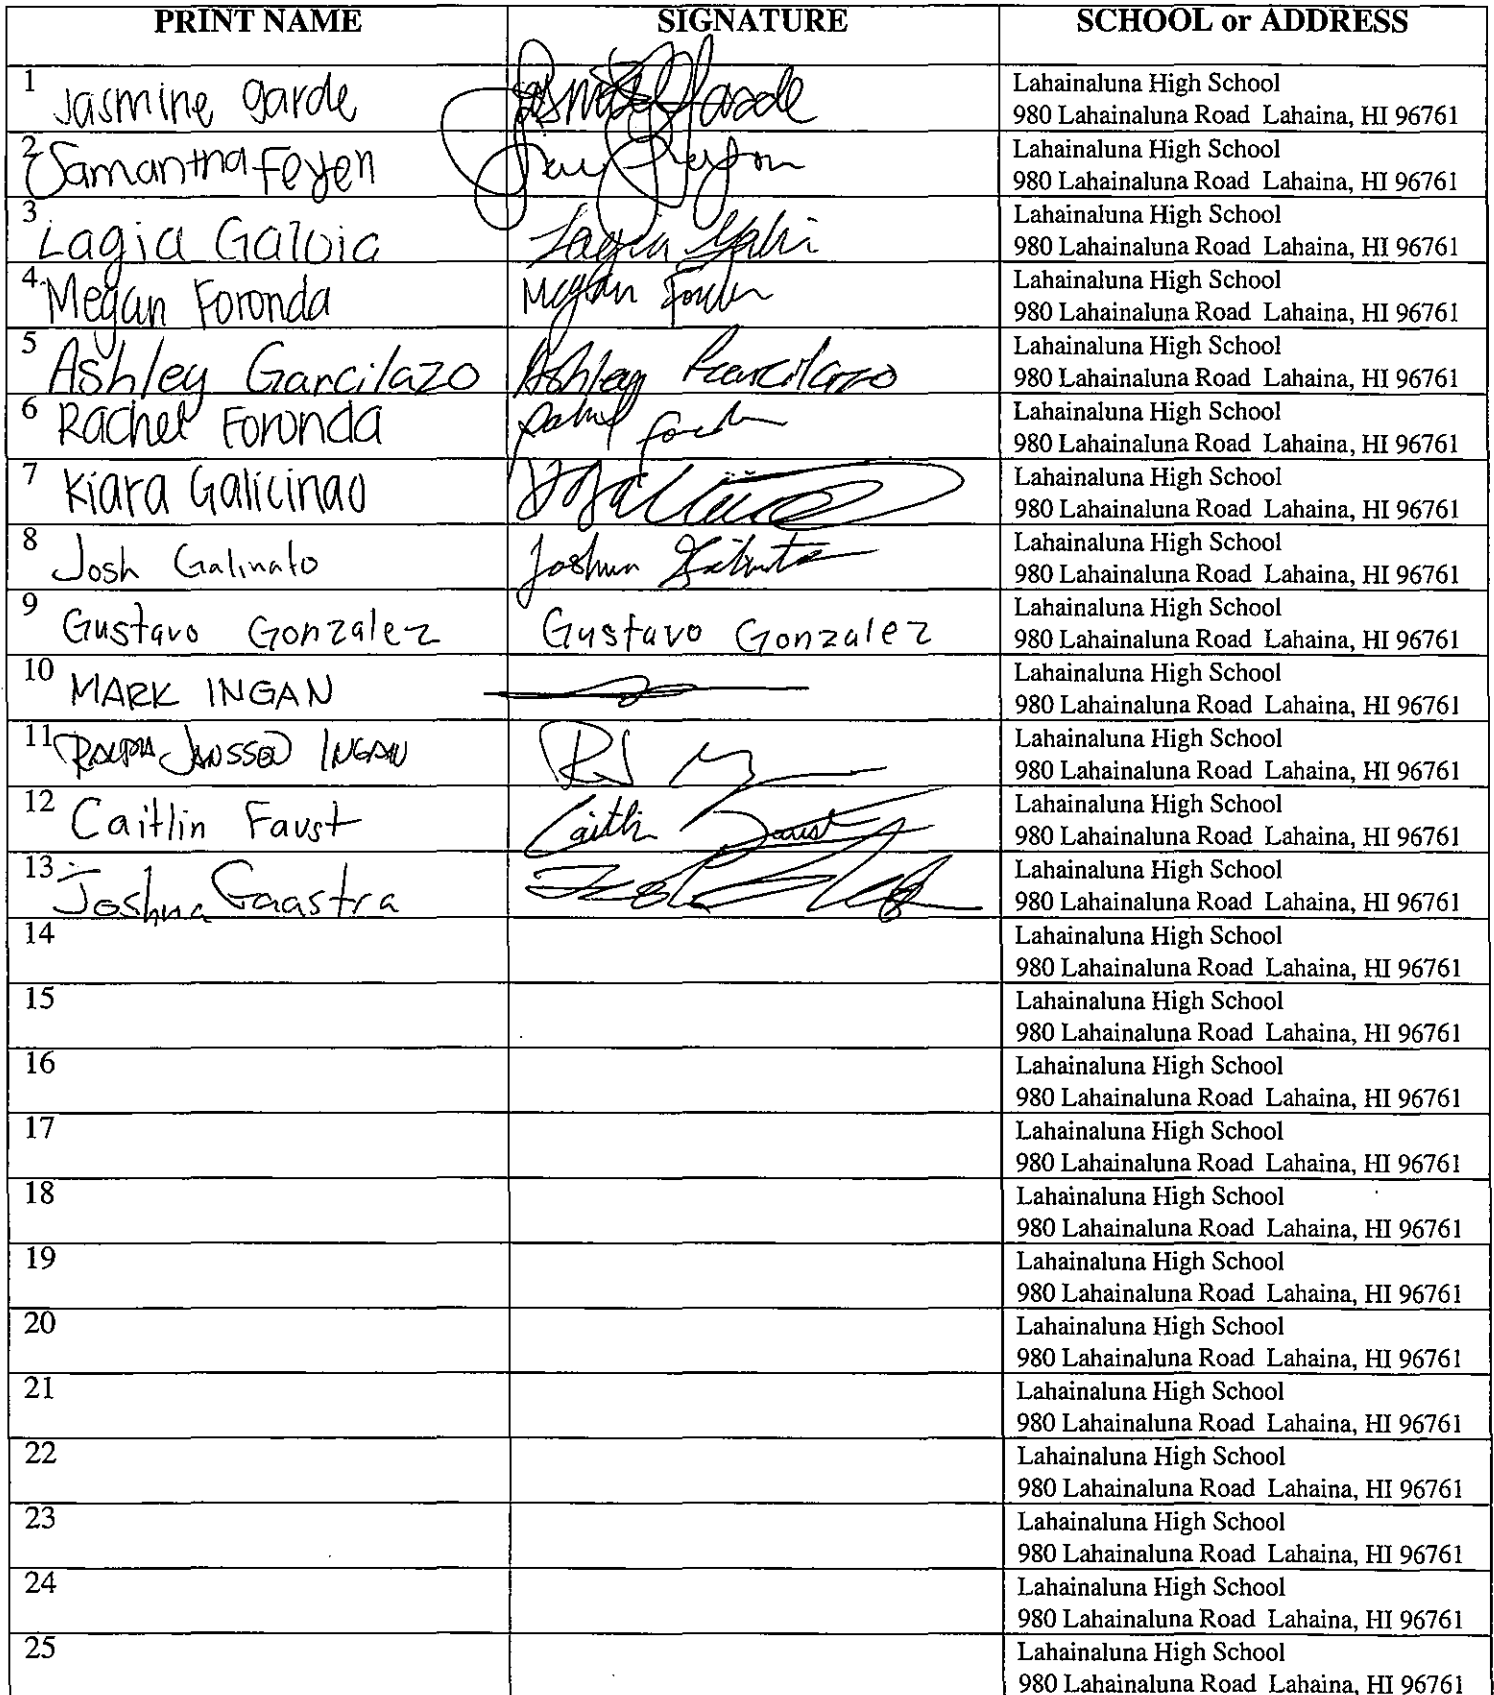 PRINT NAME SIGNATURE SCHOOL or ADDRESS
1 Jasmine Garde Jasmine Garde Lahainaluna High School
980 Lahainaluna Road Lahaina, HI 96761
2 Samantha Feyen Lahainaluna High School
980 Lahainaluna Road Lahaina, HI 96761
3 Lagia Galvia Lagia Lahainaluna High School
980 Lahainaluna Road Lahaina, HI 96761
4. Megan Foronda Megan Lahainaluna High School
980 Lahainaluna Road Lahaina, HI 96761
5 Ashley Garcilazo Ashley Garcilazo Lahainaluna High School
980 Lahainaluna Road Lahaina, HI 96761
6 Rachel Foronda Lahainaluna High School
980 Lahainaluna Road Lahaina, HI 96761
7 Kiara Galicinao Lahainaluna High School
980 Lahainaluna Road Lahaina, HI 96761
8 Josh Galinato Joshua Lahainaluna High School
980 Lahainaluna Road Lahaina, HI 96761
9 Gustavo Gonzalez Gustavo Gonzalez Lahainaluna High School
980 Lahainaluna Road Lahaina, HI 96761
10 MARK INGAN Lahainaluna High School
980 Lahainaluna Road Lahaina, HI 96761
11 RALPH JANSSEN INGAN RJ Lahainaluna High School
980 Lahainaluna Road Lahaina, HI 96761
12 Caitlin Faust Caitlin Faust Lahainaluna High School
980 Lahainaluna Road Lahaina, HI 96761
13 Joshua Gaastra Lahainaluna High School
980 Lahainaluna Road Lahaina, HI 96761
14 Lahainaluna High School
980 Lahainaluna Road Lahaina, HI 96761
15 Lahainaluna High School
980 Lahainaluna Road Lahaina, HI 96761
16 Lahainaluna High School
980 Lahainaluna Road Lahaina, HI 96761
17 Lahainaluna High School
980 Lahainaluna Road Lahaina, HI 96761
18 Lahainaluna High School
980 Lahainaluna Road Lahaina, HI 96761
19 Lahainaluna High School
980 Lahainaluna Road Lahaina, HI 96761
20 Lahainaluna High School
980 Lahainaluna Road Lahaina, HI 96761
21 Lahainaluna High School
980 Lahainaluna Road Lahaina, HI 96761
22 Lahainaluna High School
980 Lahainaluna Road Lahaina, HI 96761
23 Lahainaluna High School
980 Lahainaluna Road Lahaina, HI 96761
24 Lahainaluna High School
980 Lahainaluna Road Lahaina, HI 96761
25 Lahainaluna High School
980 Lahainaluna Road Lahaina, HI 96761